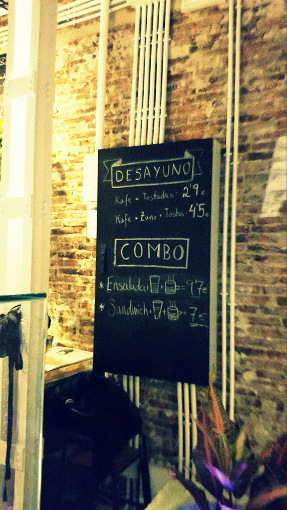 DESAYUNO
Kafe + Tostadas: 2'9€
Kafe + Zumo + Tosta: 4'5€
COMBO
* Ensalada + + = 9'7€
* Sandwich + + = 7€